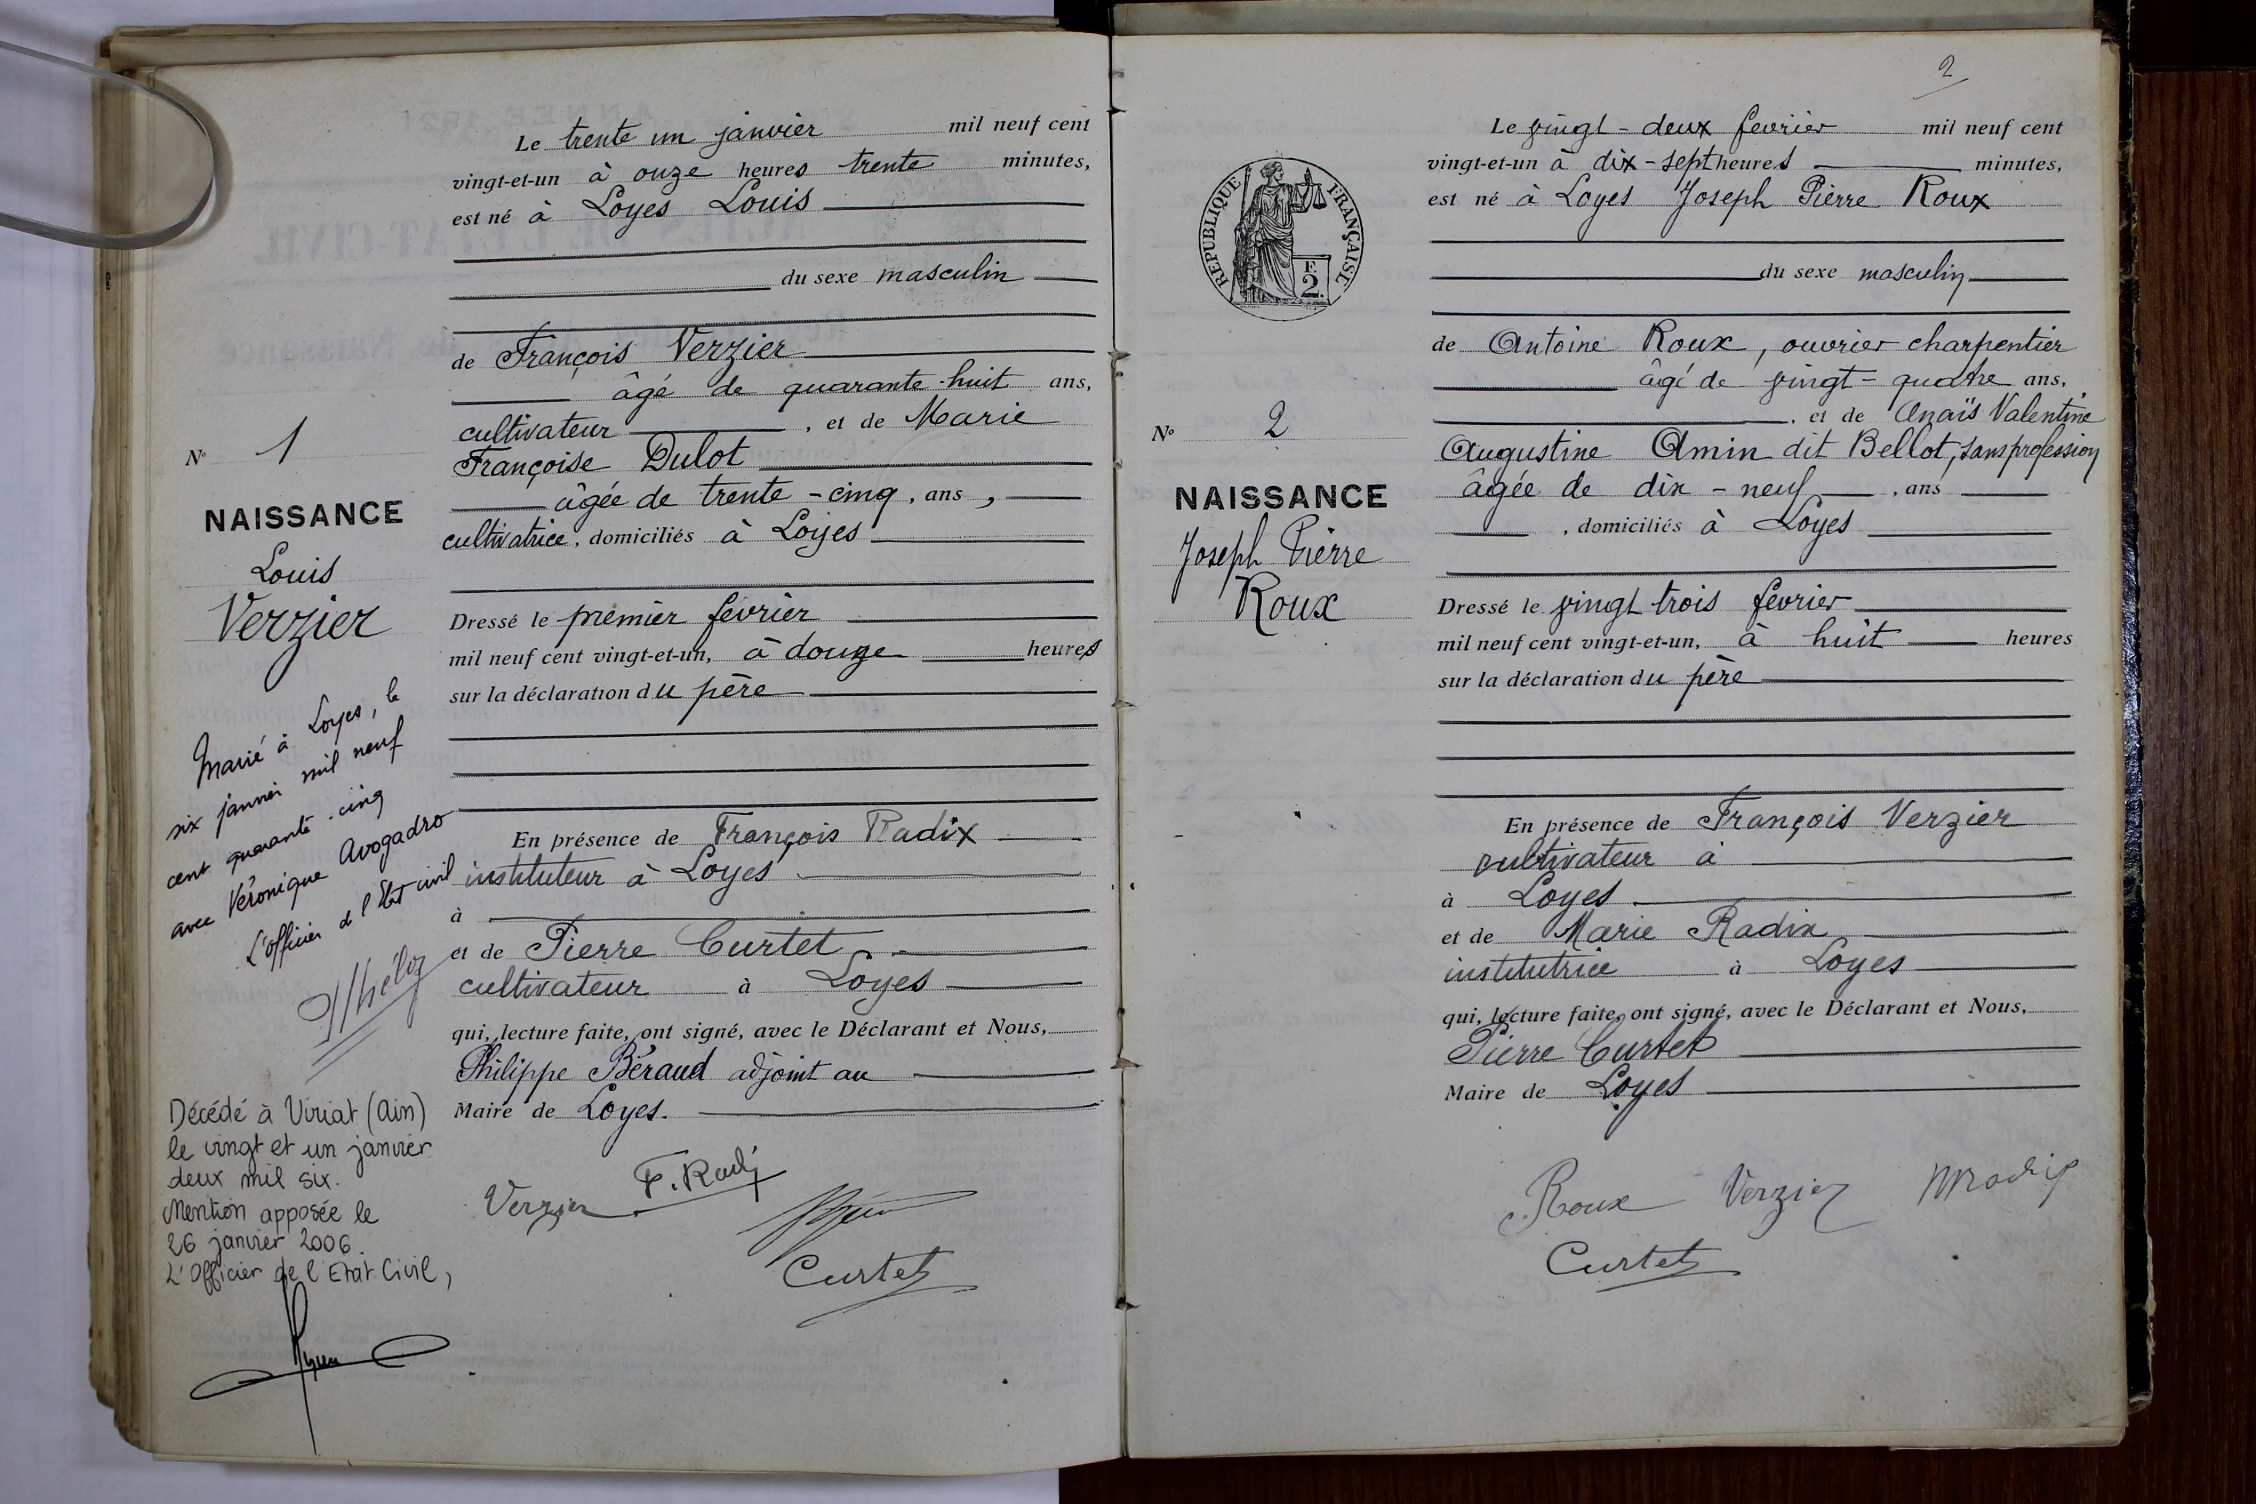 Le trente un janvier mil neuf cent
vingt-et-un à onze heures trente minutes,
est né à Loyes Louis
du sexe masculin
de François Verzier
âgé de quarante-huit ans,
cultivateur, et de Marie
Françoise Dulot
âgée de trente-cinq, ans,
cultivatrice, domiciliés à Loyes
N° 1
NAISSANCE
Louis
Verzier
Dressé le premier février
mil neuf cent vingt-et-un, à douze heures
sur la déclaration du père
En présence de François Radix
instituteur à Loyes
à
et de Pierre Curtet
cultivateur à Loyes
qui, lecture faite, ont signé, avec le Déclarant et Nous,
Philippe Béraud adjoint au
Maire de Loyes.
Marié à Loyes, le
six janvier mil neuf
cent quarante-cinq
avec Véronique Avogadro
L'officier de l'Etat civil
Décédé à Viriat (Ain)
le vingt et un janvier
deux mil six.
Mention apposée le
26 janvier 2006.
L'Officier de l'Etat Civil,
Verzier F. Radix
Curtet
2
REPUBLIQUE FRANÇAISE
2
Le vingt-deux fevrier mil neuf cent
vingt-et-un à dix-sept heures minutes,
est né à Loyes Joseph Pierre Roux
du sexe masculin
de Antoine Roux, ouvrier charpentier
âgé de vingt-quatre ans,
, et de Anaïs Valentine
Augustine Amin dit Bellot, sans profession
âgée de dix-neuf, ans
, domiciliés à Loyes
N° 2
NAISSANCE
Joseph Pierre
Roux
Dressé le vingt trois fevrier
mil neuf cent vingt-et-un, à huit heures
sur la déclaration du père
En présence de François Verzier
cultivateur à
à Loyes
et de Marie Radix
institutrice à Loyes
qui, lecture faite, ont signé, avec le Déclarant et Nous,
Pierre Curtet
Maire de Loyes
Roux Verzier MRadix
Curtet